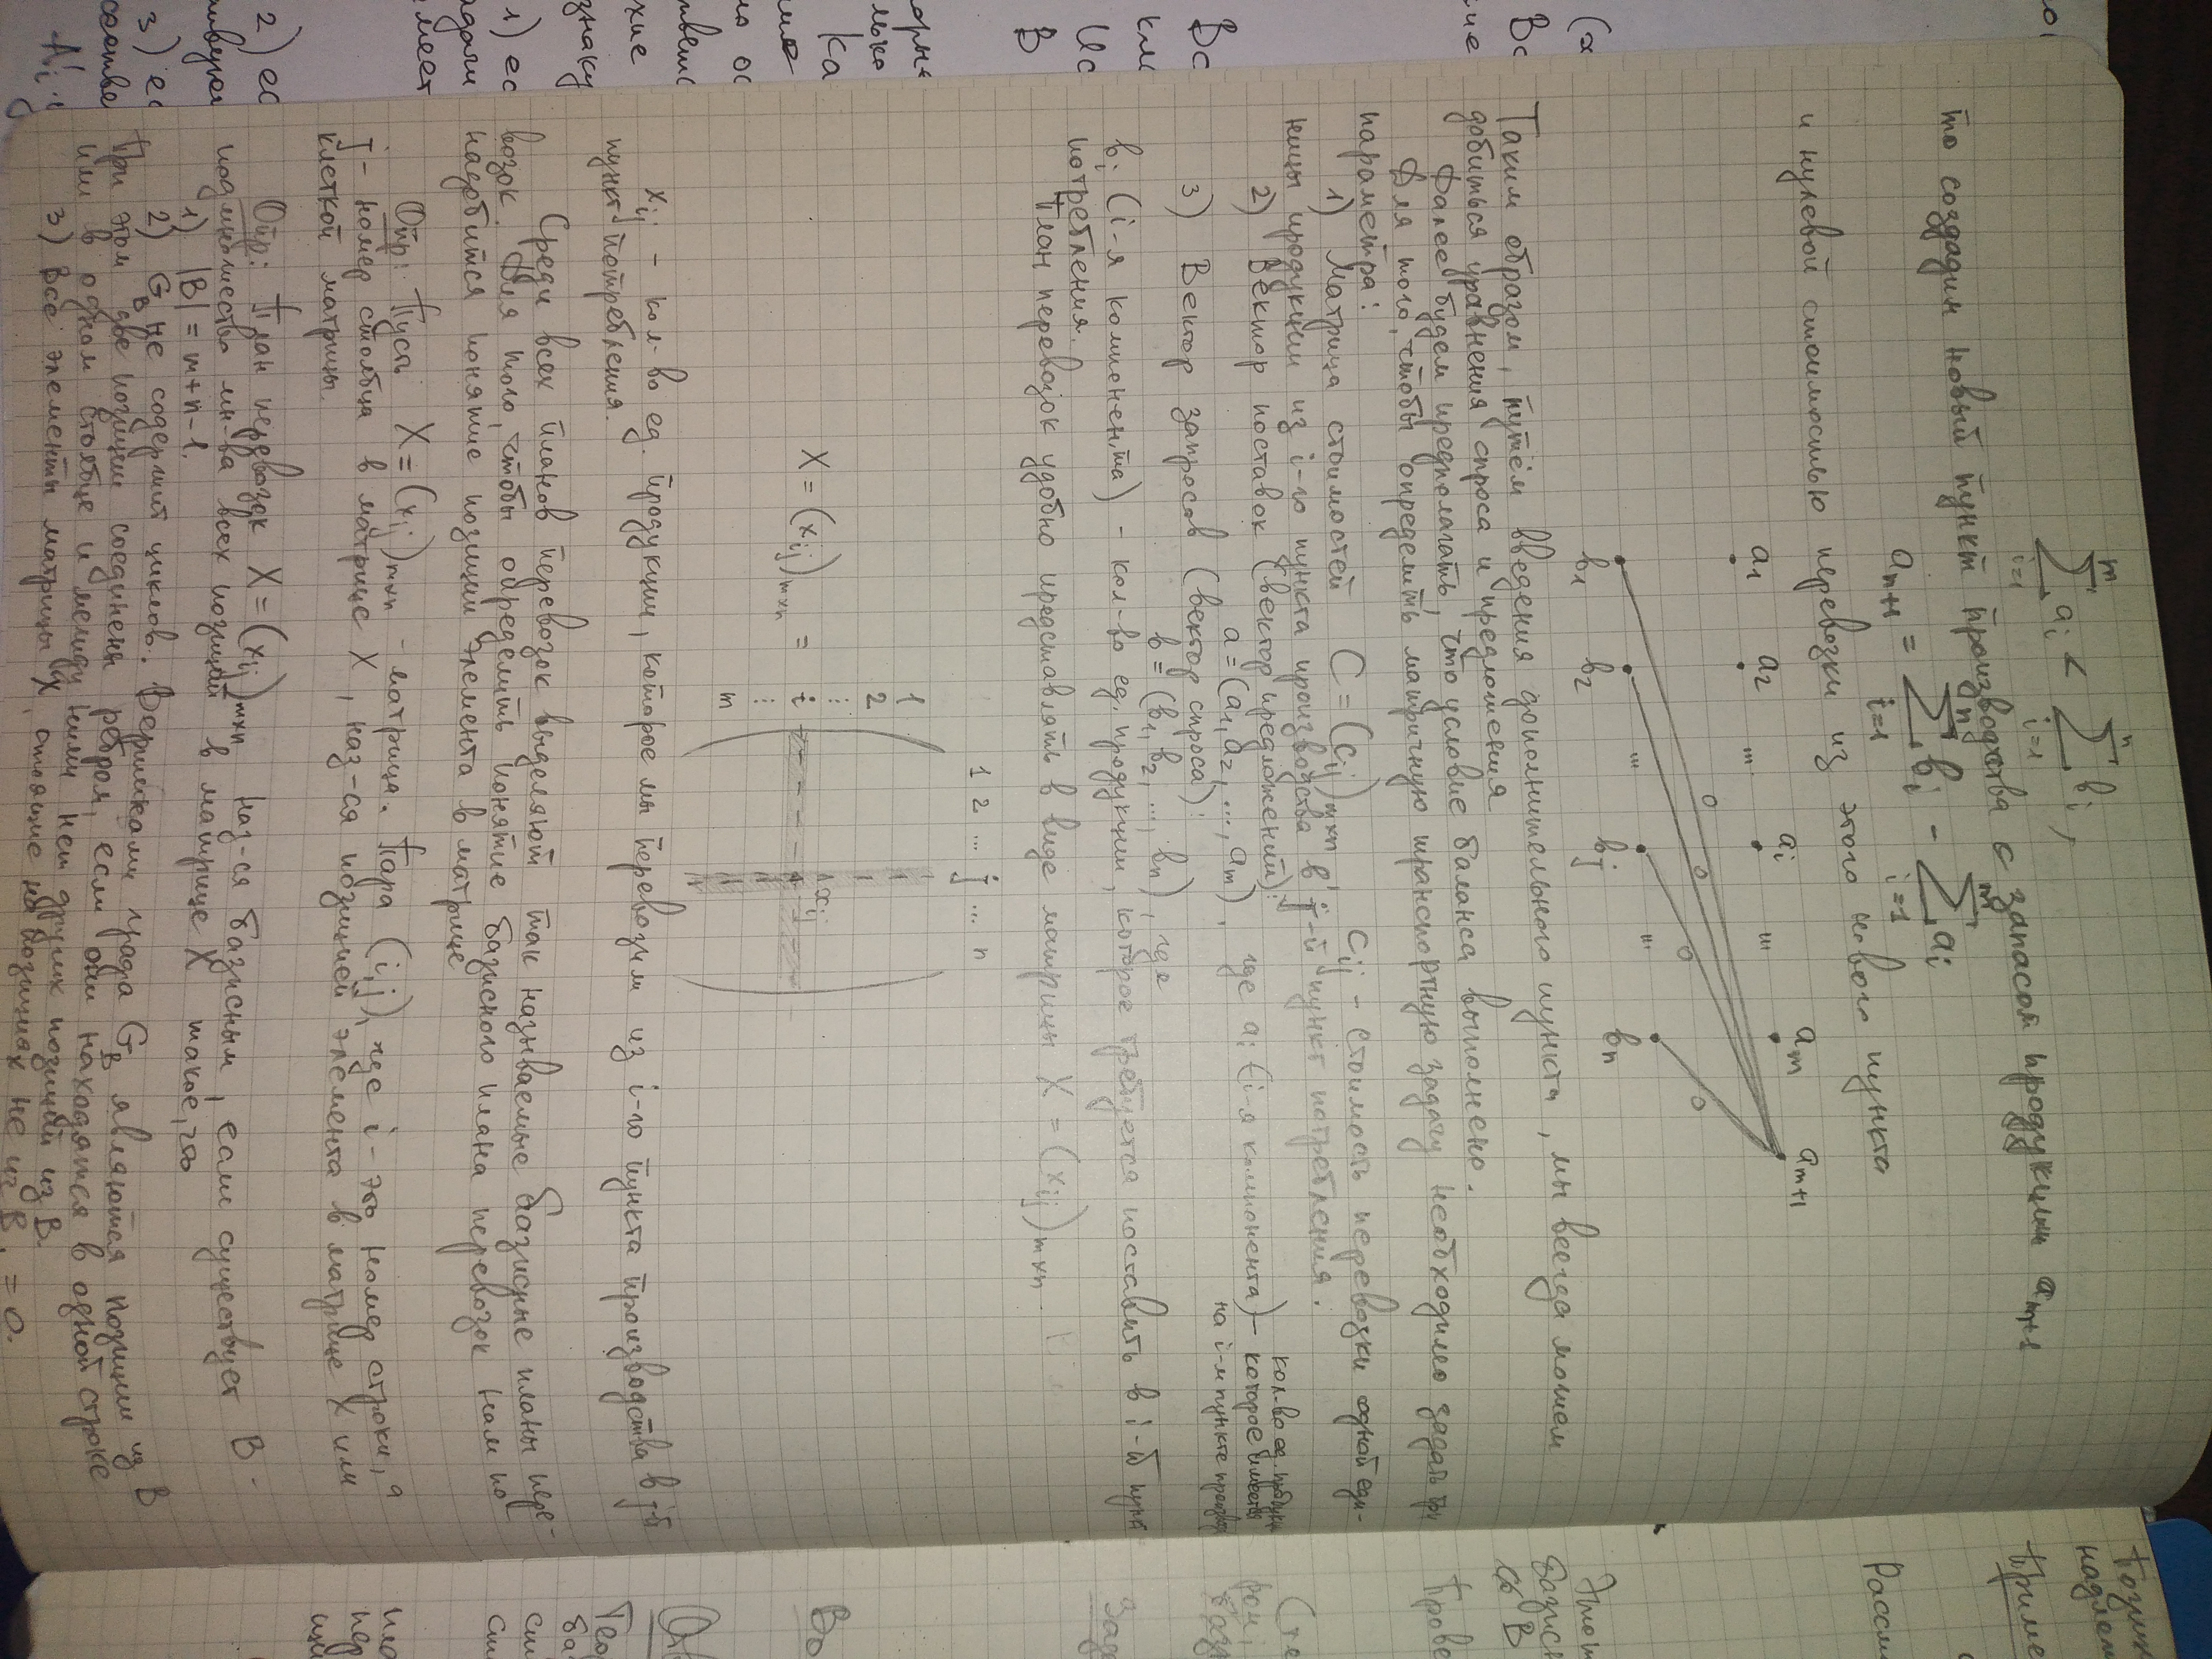 m n
∑ aᵢ < ∑ bᵢ ,
i=1 i=1
то создадим новый пункт производства с запасом продукции aₘ₊₁
n m
aₙ₊₁ = ∑ bᵢ - ∑ aᵢ
i=1 i=1
и нулевой стоимостью перевозки из этого нового пункта
a₁ a₂ ... aᵢ ... aₘ aₘ₊₁
0 0 0 0
b₁ b₂ ... bⱼ ... bₙ
Таким образом, путём введения дополнительного пункта, мы всегда можем
добиться уравнения спроса и предложения
Далее будем предполагать, что условие баланса выполнено.
Для того, чтобы определить матричную транспортную задачу необходимо задать три
параметра:
1) Матрица стоимостей C = (cᵢⱼ)ₘₓₙ , cᵢⱼ - стоимость перевозки одной еди-
ницы продукции из i-го пункта производства в j-й пункт потребления.
2) Вектор поставок (вектор предложений):
a = (a₁, a₂, ..., aₘ), где aᵢ (i-я компонента) - кол-во ед. продукции
которое имеется
на i-м пункте производ
3) Вектор запросов (вектор спроса):
b = (b₁, b₂, ..., bₙ), где
bᵢ (i-я компонента) - кол-во ед. продукции, которое требуется поставить в i-й пункт
потребления.
План перевозок удобно представлять в виде матрицы X = (xᵢⱼ)ₘₓₙ
1 2 ... j ... n
1
2
⋮
X = (xᵢⱼ)ₘₓₙ = i xᵢⱼ
⋮
m
xᵢⱼ - кол-во ед. продукции, которое мы перевозим из i-го пункта производства в j-й
пункт потребления.
Среди всех планов перевозок выделяют так называемые базисные планы пере-
возок. Для того, чтобы определить понятие базисного плана перевозок нам по
надобится понятие позиции элемента в матрице
Опр: Пусть X = (xᵢⱼ)ₘₓₙ - матрица. Пара (i,j), где i - это номер строки, а
j - номер столбца в матрице X, наз-ся позицией элемента в матрице X или
клеткой матрицы.
Опр: План перевозок X = (xᵢⱼ)ₘₓₙ наз-ся базисным, если существует B -
подмножество мн-ва всех позиций в матрице X такое, что
1) |B| = m+n-1.
2) G_B не содержит циклов. Вершинами графа G_B являются позиции из B
При этом две позиции соединены ребром, если они находятся в одной строке
или в одном столбце и между ними нет других позиций из B.
3) Все элементы матрицы X, стоящие на позициях не из B, = 0.